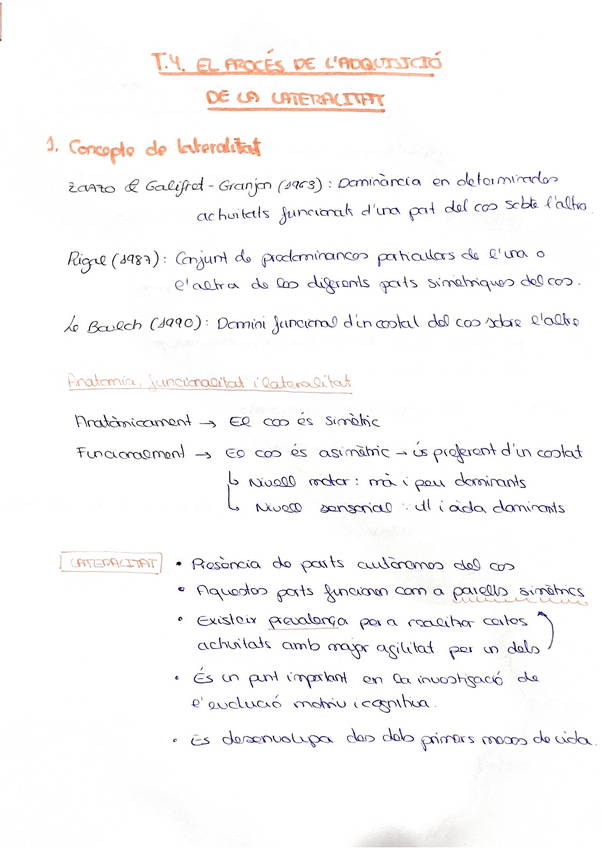 T.4. EL PROCÉS DE L'ADQUISICIÓ
DE LA LATERALITAT
1. Concepte de lateralitat
Zazzo & Galifret-Granjon (1963): Dominància en determinades
activitats funcionals d'una part del cos sobre l'altra.
Rigal (1987): Conjunt de predominances particulars de l'una o
l'altra de les diferents parts simètriques del cos.
Le Boulch (1990): Domini funcional d'un costat del cos sobre l'altre
Anatomia, funcionalitat i lateralitat
Anatòmicament → El cos és simètric
Funcionalment → El cos és asimètric → ús preferent d'un costat
↳ Nivell motor: mà i peu dominants
↳ Nivell sensorial: ull i oïda dominants
LATERALITAT • Presència de parts autònomes del cos
• Aquestes parts funcionen com a parells simètrics
• Existeix prevalença per a realitzar certes
activitats amb major agilitat per un dels
• És un punt important en la investigació de
l'evolució motriu i cognitiva.
• Es desenvolupa des dels primers mesos de vida.